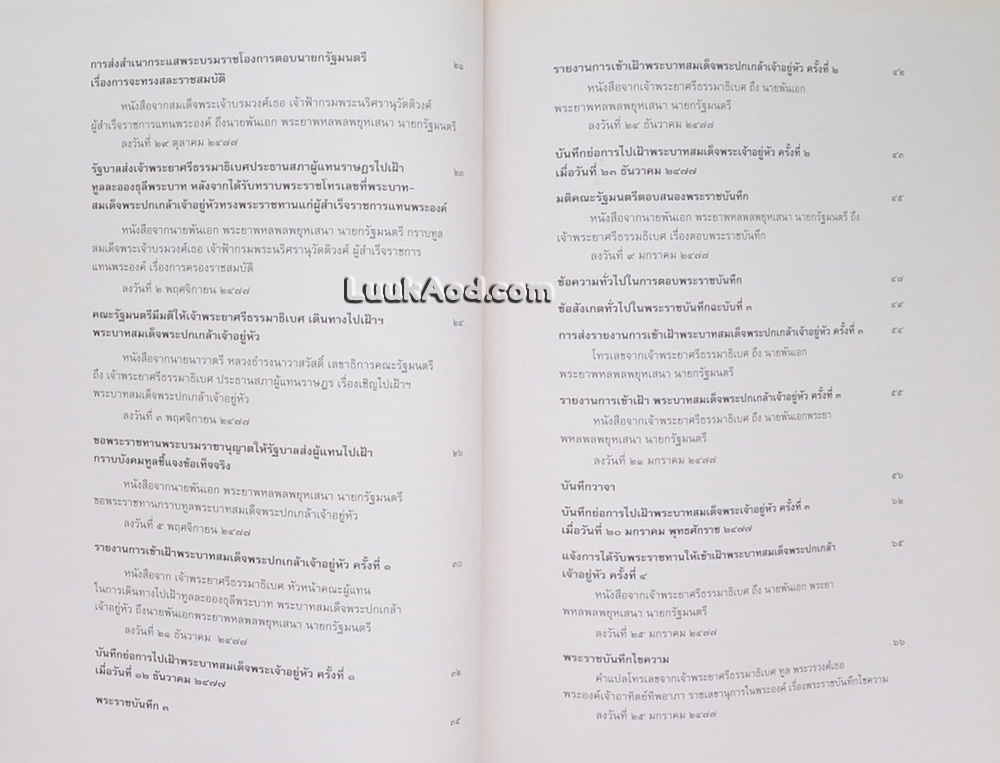 การส่งสำเนากระแสพระบรมราชโองการตอบนายกรัฐมนตรี ๒๑
เรื่องการจะทรงสละราชสมบัติ
หนังสือจากสมเด็จพระเจ้าบรมวงศ์เธอ เจ้าฟ้ากรมพระนริศรานุวัดติวงศ์
ผู้สำเร็จราชการแทนพระองค์ ถึงนายพันเอก พระยาพหลพลพยุหเสนา นายกรัฐมนตรี
ลงวันที่ ๒๙ ตุลาคม ๒๔๗๗
รัฐบาลส่งเจ้าพระยาศรีธรรมาธิเบศประธานสภาผู้แทนราษฎรไปเฝ้า ๒๓
ทูลละอองธุลีพระบาท หลังจากได้รับทราบพระราชโทรเลขที่พระบาท-
สมเด็จพระปกเกล้าเจ้าอยู่หัวทรงพระราชทานแก่ผู้สำเร็จราชการแทนพระองค์
หนังสือจากนายพันเอก พระยาพหลพลพยุหเสนา นายกรัฐมนตรี กราบทูล
สมเด็จพระเจ้าบรมวงศ์เธอ เจ้าฟ้ากรมพระนริศรานุวัดติวงศ์ ผู้สำเร็จราชการ
แทนพระองค์ เรื่องการครองราชสมบัติ
ลงวันที่ ๒ พฤศจิกายน ๒๔๗๗
คณะรัฐมนตรีมีมติให้เจ้าพระยาศรีธรรมาธิเบศ เดินทางไปเฝ้าฯ ๒๔
พระบาทสมเด็จพระปกเกล้าเจ้าอยู่หัว
หนังสือจากนายนาวาตรี หลวงธำรงนาวาสวัสดิ์ เลขาธิการคณะรัฐมนตรี
ถึง เจ้าพระยาศรีธรรมาธิเบศ ประธานสภาผู้แทนราษฎร เรื่องเชิญไปเฝ้าฯ
พระบาทสมเด็จพระปกเกล้าเจ้าอยู่หัว
ลงวันที่ ๓ พฤศจิกายน ๒๔๗๗
ขอพระราชทานพระบรมราชานุญาตให้รัฐบาลส่งผู้แทนไปเฝ้า ๒๖
กราบบังคมทูลชี้แจงข้อเท็จจริง
หนังสือจากนายพันเอก พระยาพหลพลพยุหเสนา นายกรัฐมนตรี
ขอพระราชทานกราบทูลพระบาทสมเด็จพระปกเกล้าเจ้าอยู่หัว
ลงวันที่ ๕ พฤศจิกายน ๒๔๗๗
รายงานการเข้าเฝ้าพระบาทสมเด็จพระปกเกล้าเจ้าอยู่หัว ครั้งที่ ๑ ๓๐
หนังสือจาก เจ้าพระยาศรีธรรมาธิเบศ หัวหน้าคณะผู้แทน
ในการเดินทางไปทูลละอองธุลีพระบาท พระบาทสมเด็จพระปกเกล้า
เจ้าอยู่หัว ถึงนายพันเอกพระยาพหลพลพยุหเสนา นายกรัฐมนตรี
ลงวันที่ ๒๑ ธันวาคม ๒๔๗๗
บันทึกย่อการไปเฝ้าพระบาทสมเด็จพระเจ้าอยู่หัว ครั้งที่ ๑ ๓๒
เมื่อวันที่ ๑๒ ธันวาคม ๒๔๗๗
พระราชบันทึก ๓ ๓๕
รายงานการเข้าเฝ้าพระบาทสมเด็จพระปกเกล้าเจ้าอยู่หัว ครั้งที่ ๒ ๔๒
หนังสือจากเจ้าพระยาศรีธรรมาธิเบศ ถึง นายพันเอก
พระยาพหลพลพยุหเสนา นายกรัฐมนตรี
ลงวันที่ ๒๔ ธันวาคม ๒๔๗๗
บันทึกย่อการไปเฝ้าพระบาทสมเด็จพระเจ้าอยู่หัว ครั้งที่ ๒ ๔๓
เมื่อวันที่ ๒๓ ธันวาคม ๒๔๗๗
มติคณะรัฐมนตรีตอบสนองพระราชบันทึก ๔๕
หนังสือจากนายพันเอก พระยาพหลพลพยุหเสนา นายกรัฐมนตรี ถึง
เจ้าพระยาศรีธรรมาธิเบศ เรื่องตอบพระราชบันทึก
ลงวันที่ ๙ มกราคม ๒๔๗๗
ข้อความทั่วไปในการตอบพระราชบันทึก ๔๗
ข้อสังเกตทั่วไปในพระราชบันทึกฉะบับที่ ๓ ๔๙
การส่งรายงานการเข้าเฝ้าพระบาทสมเด็จพระปกเกล้าเจ้าอยู่หัว ครั้งที่ ๓ ๕๔
โทรเลขจากเจ้าพระยาศรีธรรมาธิเบศ ถึง นายพันเอก
พระยาพหลพลพยุหเสนา นายกรัฐมนตรี
รายงานการเข้าเฝ้า พระบาทสมเด็จพระปกเกล้าเจ้าอยู่หัว ครั้งที่ ๓ ๕๕
หนังสือจากเจ้าพระยาศรีธรรมาธิเบศ ถึง นายพันเอกพระยา
พหลพลพยุหเสนา นายกรัฐมนตรี
ลงวันที่ ๒๑ มกราคม ๒๔๗๗
บันทึกวาจา ๕๖
บันทึกย่อการไปเฝ้าพระบาทสมเด็จพระเจ้าอยู่หัว ครั้งที่ ๓ ๖๒
เมื่อวันที่ ๒๐ มกราคม พุทธศักราช ๒๔๗๗
แจ้งการได้รับพระราชทานให้เข้าเฝ้าพระบาทสมเด็จพระปกเกล้า ๖๕
เจ้าอยู่หัว ครั้งที่ ๔
หนังสือจากเจ้าพระยาศรีธรรมาธิเบศ ถึง นายพันเอก พระยา
พหลพลพยุหเสนา นายกรัฐมนตรี
ลงวันที่ ๒๕ มกราคม ๒๔๗๗
พระราชบันทึกไขความ ๖๖
คำแปลโทรเลขจากเจ้าพระยาศรีธรรมาธิเบศ ทูล พระวรวงศ์เธอ
พระองค์เจ้าอาทิตย์ทิพอาภา ราชเลขานุการในพระองค์ เรื่องพระราชบันทึกไขความ
ลงวันที่ ๒๕ มกราคม ๒๔๗๗
LuukAod.com